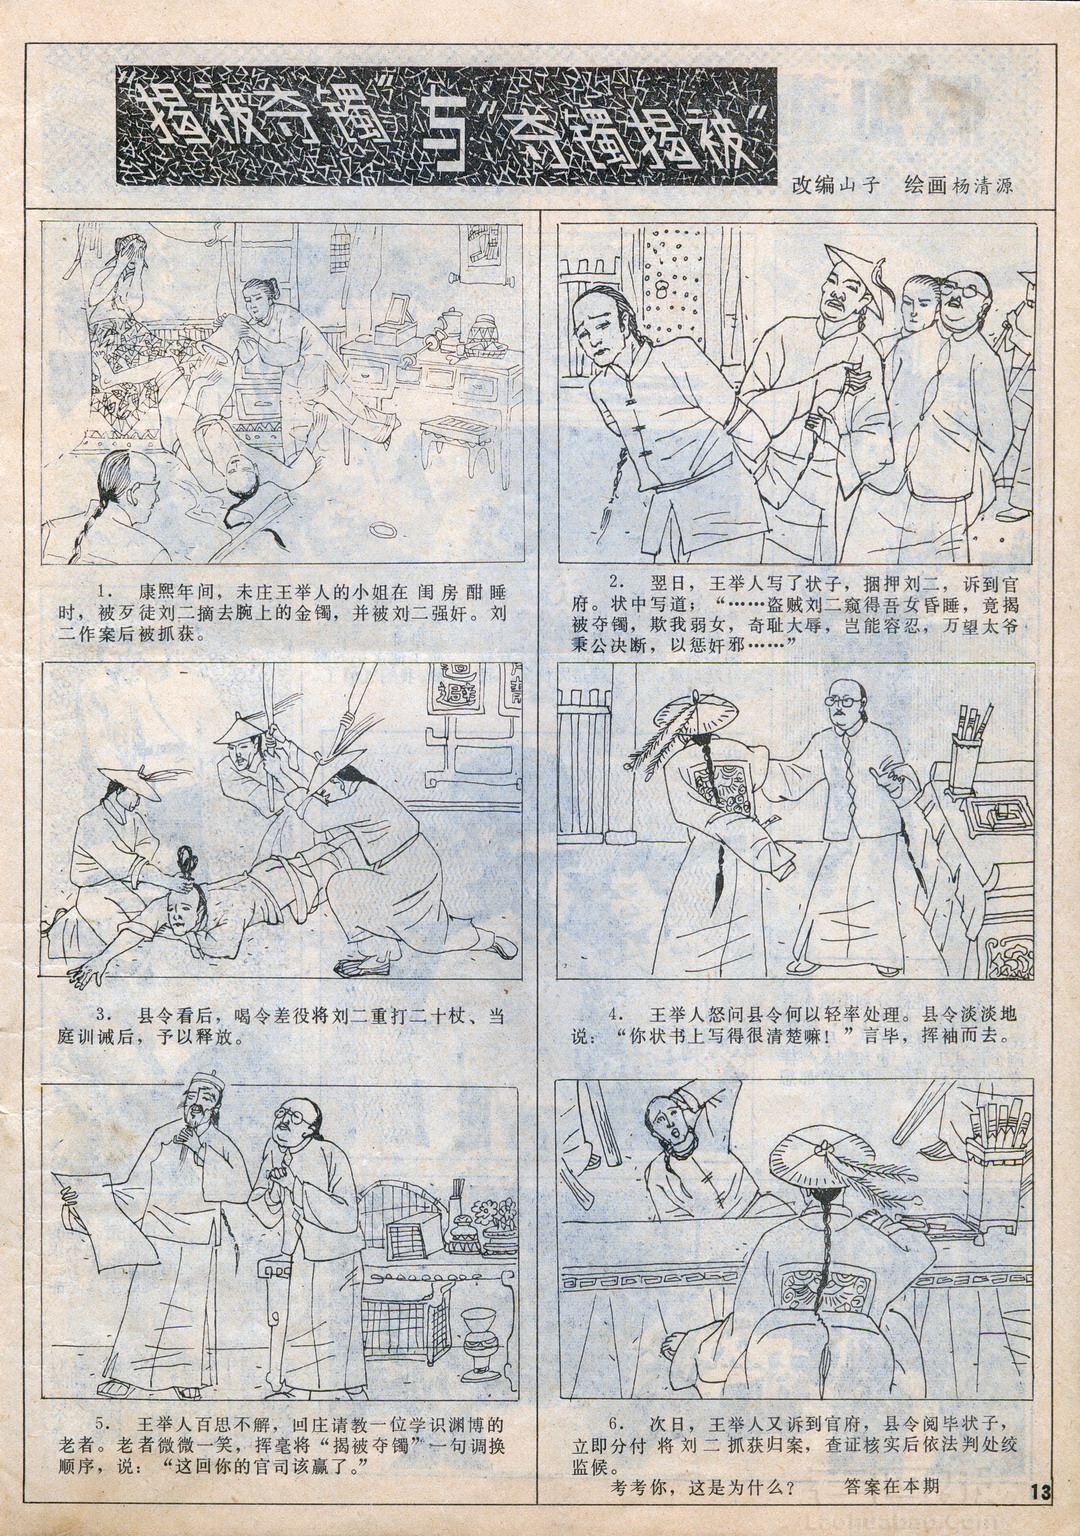 “揭被夺镯”与“夺镯揭被”
改编山子 绘画杨清源
1. 康熙年间，未庄王举人的小姐在闺房酣睡
时，被歹徒刘二摘去腕上的金镯，并被刘二强奸。刘
二作案后被抓获。
2. 翌日，王举人写了状子，捆押刘二，诉到官
府。状中写道；“……盗贼刘二窥得吾女昏睡，竟揭
被夺镯，欺我弱女，奇耻大辱，岂能容忍，万望太爷
秉公决断，以惩奸邪……”
3. 县令看后，喝令差役将刘二重打二十杖、当
庭训诫后，予以释放。
4. 王举人怒问县令何以轻率处理。县令淡淡地
说：“你状书上写得很清楚嘛！”言毕，挥袖而去。
5. 王举人百思不解，回庄请教一位学识渊博的
老者。老者微微一笑，挥毫将“揭被夺镯”一句调换
顺序，说：“这回你的官司该赢了。”
6. 次日，王举人又诉到官府，县令阅毕状子，
立即分付将刘二抓获归案，查证核实后依法判处绞
监候。
考考你，这是为什么？ 答案在本期
13